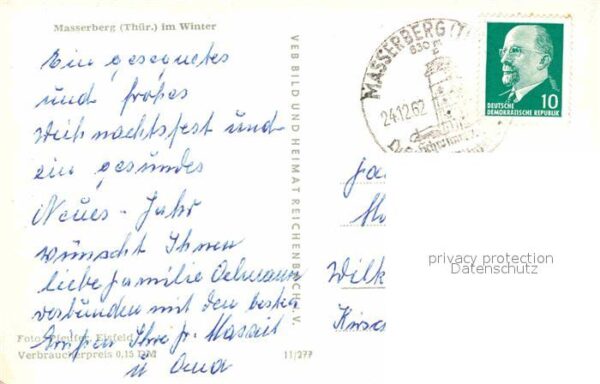 Masserberg (Thür.) im Winter
Ein gesegnetes
und frohes
Weihnachtsfest und
ein gesundes
Neues - Jahr
wünscht Ihnen
liebe Familie Oelmann
verbunden mit den besten
Grüßen Ihre fr.
u Oma
Eisfeld
Verbraucherpreis 0,15 DM
11/277
VEB BILD UND HEIMAT REICHENBACH i. V.
MASSERBERG (T
830 m
24.12.62
DEUTSCHE
DEMOKRATISCHE REPUBLIK
10
Wilk
privacy protection
Datenschutz